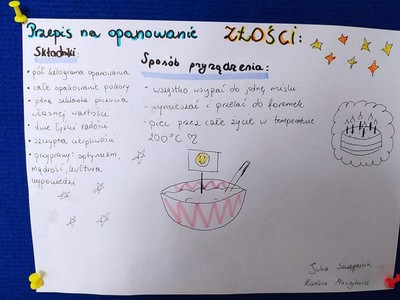 Przepis na opanowanie ZŁOŚCI:
Składniki:
• pół kilograma opanowania
• całe opakowanie pokory
• jedna szklanka poczucia
własnej wartości
• dwie łyżki radości
• szczypta cierpliwości
• przyprawy: optymizm,
mądrość, kultura
wypowiedzi
Sposób przyrządzenia:
- wszystko wsypać do jednej miski
- wymieszać i przelać do foremek
- piec przez całe życie w temperaturze
200°C ♡
Julia
Karolina